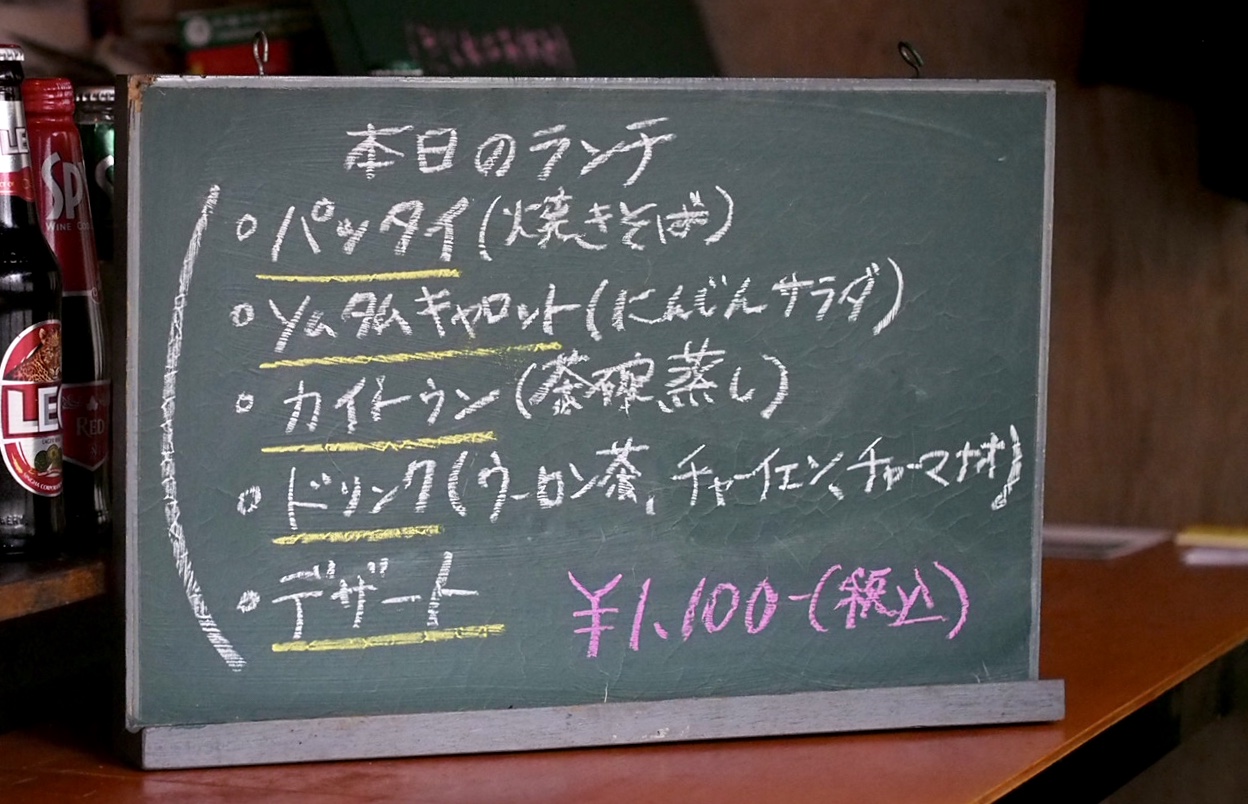 本日のランチ
○ パッタイ(焼きそば)
○ ソムタムキャロット(にんじんサラダ)
○ カイトゥン(茶碗蒸し)
○ ドリンク(ウーロン茶、チャーイエン、チャーマナオ)
○ デザート
¥1,100-(税込)
LE
SP
WINE
LE
RED